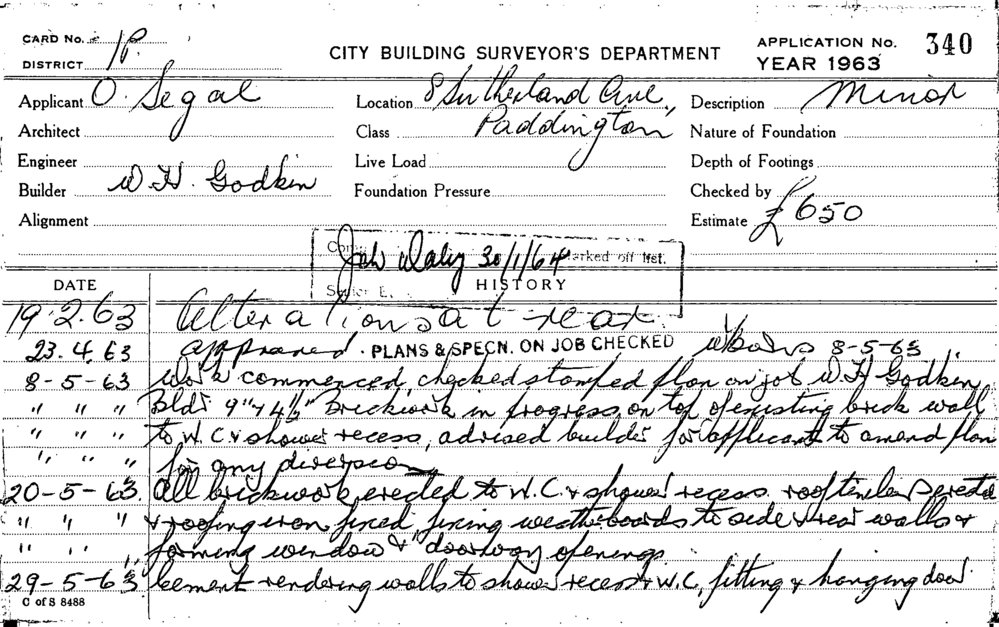 CARD No. 1P. CITY BUILDING SURVEYOR'S DEPARTMENT APPLICATION No. 340
DISTRICT YEAR 1963
Applicant O. Segal Location 8 Sutherland Ave, Description Minor
Architect Class Paddington Nature of Foundation
Engineer Live Load Depth of Footings
Builder W. H. Godkin Foundation Pressure Checked by
Alignment Estimate £650
Job 30/1/64 marked off list.
DATE HISTORY
19.2.63 Alterations at rear
23.4.63 approved. PLANS & SPECN. ON JOB CHECKED 8-5-63
8-5-63 Work commenced, checked stamped plan on job W H Godkin
" " " Bldr 9" & 4½" Brickwork in progress, on top of existing brick wall
" " " to W.C. & shower recess, advised builder for applicant to amend plan
" " " for any diversion
20-5-63. All brickwork erected to W.C. & shower recess. roof timbers erected
" " " & roofing iron fixed, fixing weatherboards to side & rear walls &
" " " forming window & doorway openings
29-5-63 Cement rendering walls to shower recess & W.C, fitting & hanging door
C of S 8488